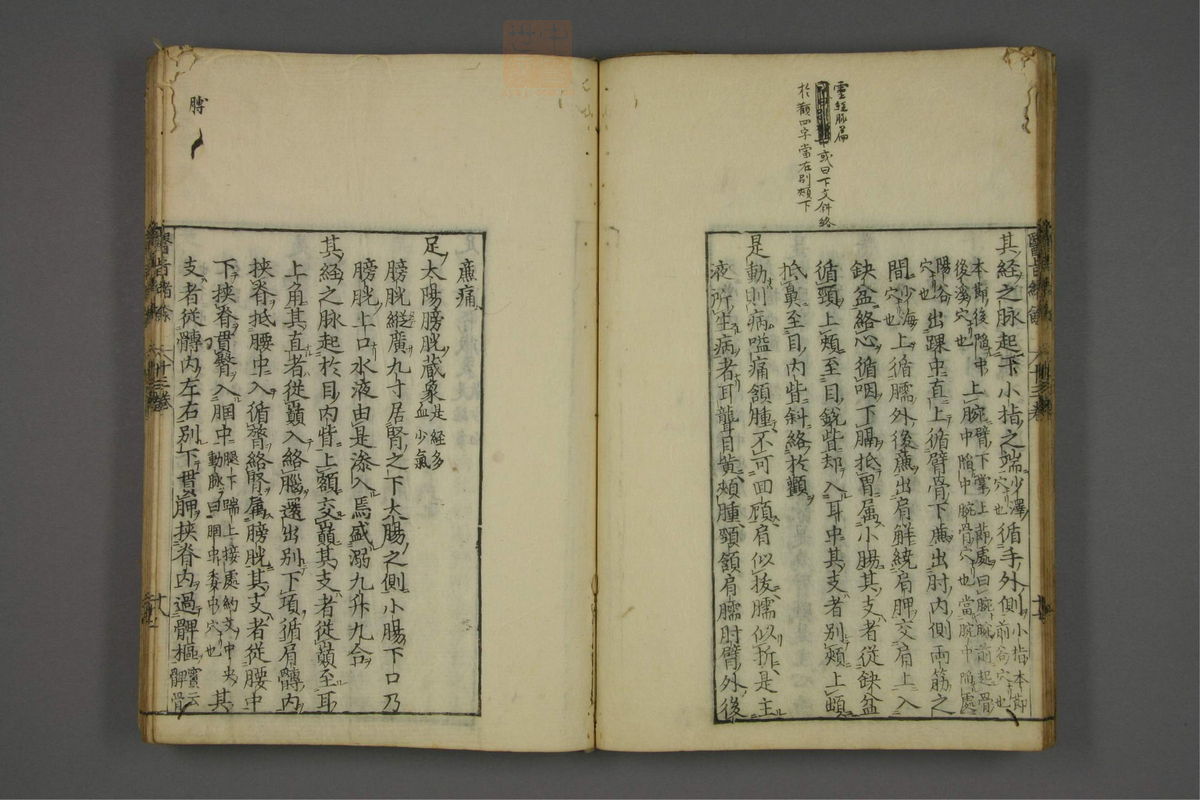 靈經脉篇
或曰下文併絡
於顴四字當在別頰下
其經之脉起于小指之端少澤穴也循手外側小指本節前谷穴也
本節後陷中後溪穴也上腕臂下掌上節處曰腕腕前起骨
腕中陷中腕骨穴也當腕中陷處
陽谷穴也出踝中直上循臂骨下廉出肘内側兩筋之
間少海穴也上循臑外後廉出肩解繞肩胛交肩上入
鈌盆絡心循咽下膈抵胃属小腸其支者從鈌盆
循頸上頰至目銳眥却入耳中其支者別頰上䪼
抵鼻至目内眥斜絡於顴
是動則病嗌痛頷腫不可回顧肩似拔臑似折是主
液所生病者耳聾目黄頰腫頸頷肩臑肘臂外後
廉痛
足太陽膀胱藏象是經多血少氣
膀胱縱廣九寸居腎之下大腸之側小腸下口乃
膀胱上口水液由是滲入焉盛溺九升九合
其經之脉起於目内眥上額交巔其支者從巔至耳
上角其直者從巔入絡腦還出別下項循肩髆内
挾脊抵腰中入循膂絡腎属膀胱其支者從腰中
下挾脊貫臀入膕中腿下腨上接處約文中央動脉曰膕中委中穴也其
支者從髆内左右別下貫胛挾脊内過髀樞靈云髀骨
髆